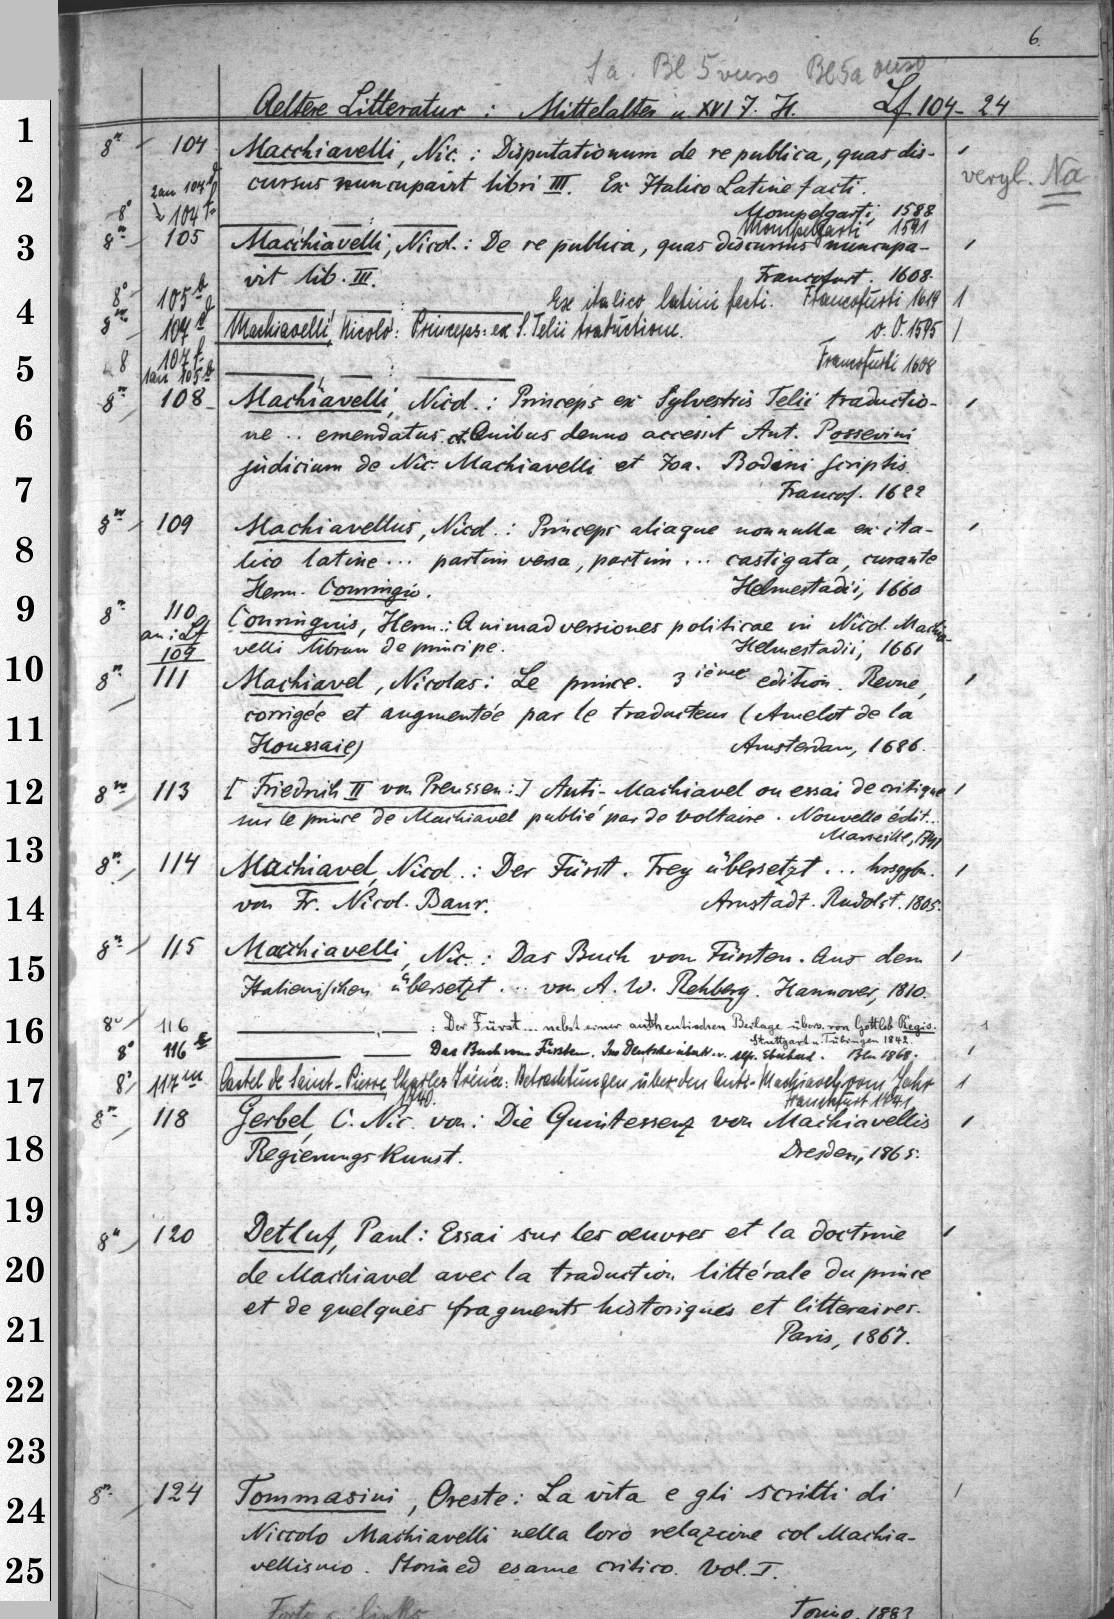 6.
s a. Bl 5 verso Bl 5a verso
Aeltere Litteratur : Mittelalter u. XVI J. H. Lf 104-24
1
8° 104 Macchiavelli, Nic.: Disputationum de re publica, quas dis-
2
cursus nuncupavit libri III. Ex Italico Latine facti. vergl. Na
2 an 104
Mompelgarti, 1588
8° 104 f. Mompelgarti 1591
3
8° 105 Machiavelli, Nicol.: De re publica, quas discursus nuncupa-
vit lib. III. Francofurt. 1608.
8° 105 b Ex italico latini facti. Francofurti 1619
4
8° 107 d Machiavelli, Nicolo: Princeps: ex S. Telii traductione. o. O. 1595
8 107 f. Francofurti 1608
5
1 an 105 b
8° 108 Machiavelli, Nicol.: Princeps ex Sylvestris Telii traductio-
6
ne .. emendatus. Quibus denuo accessit Ant. Possevini
judicium de Nic. Machiavelli et Joa. Bodini scriptis.
7
Francof. 1622
8° 109 Machiavellus, Nicol.: Princeps aliaque nonnulla ex ita-
8
lico latine ... partim versa, partim ... castigata, curante
Herm. Conringio. Helmestadii, 1660
9
8° 110 Conringius, Herm.: Animadversiones politicae in Nicol. Machia-
an: Lf
velli librum de principe. Helmestadii, 1661
109
10
8° 111 Machiavel, Nicolas: Le prince. 3 ième edition. Revue,
11
corrigée et augmentée par le traducteur (Amelot de la
Houssaie) Amsterdam, 1686.
12
8° 113 [Friedrich II von Preussen:] Anti-Machiavel ou essai de critique
sur le prince de Machiavel publié par de Voltaire. Nouvelle édit..
Marseille, 1741
13
8° 114 Machiavel, Nicol.: Der Fürst. Frey übersetzt ... hrsggbn.
14
von Fr. Nicol. Baur. Arnstadt. Rudolst. 1805.
8° 115 Machiavelli, Nic.: Das Buch von Fürsten. Aus dem
15
Italienischen übersetzt ... von A. W. Rehberg. Hannover, 1810.
16
8° 116 : Der Fürst ... nebst einer authentischen Beilage übers. von Gottlob Regis.
Stuttgart u. Tübingen 1842.
8° 116 Das Buch vom Fürsten. Ins Deutsche übers. v. Alf. Eberhard. Bln 1868.
17
8° 117 m Castel de Saint-Pierre, Charles Irénée: Betrachtungen über den Anti-Machiavel vom Jahr
1740. Frankfurt 1741
8° 118 Gerbel, C. Nic. von: Die Quintessenz von Machiavellis
18
Regierungskunst. Dresden, 1865.
19
8° 120 Detluf, Paul: Essai sur les œuvres et la doctrine
20
de Machiavel avec la traduction littérale du prince
et de quelques fragments historiques et litteraires.
21
Paris, 1867.
22
23
8° 124 Tommasini, Oreste: La vita e gli scritti di
24
Niccolo Machiavelli nella loro relazione col Machia-
25
vellismo. Storia ed esame critico. Vol. I.
Forts. s. links
Torino, 1883